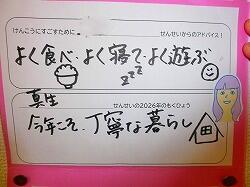 けんこうにすごすために
せんせいからのアドバイス！
よく食べ、よく寝て、よく遊ぶ
zzz
真生
せんせいの2026年のもくひょう
今年こそ、丁寧な暮らし